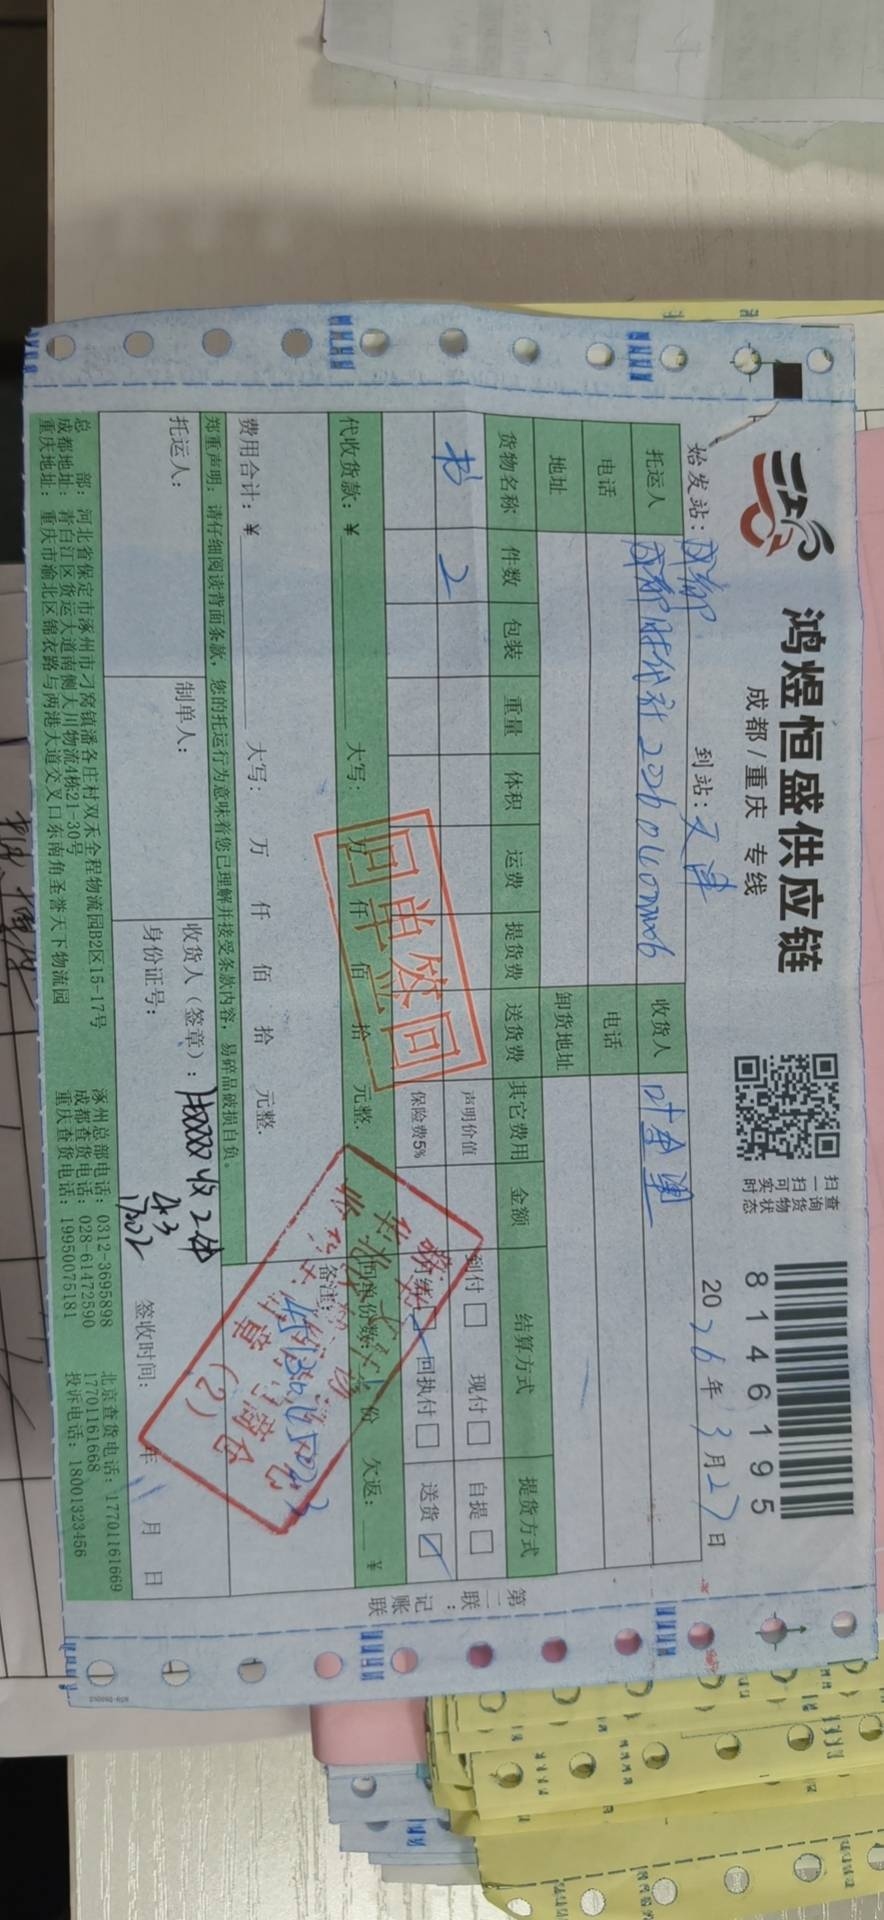 鸿煜恒盛供应链
成都/重庆 专线
扫一扫可实时
查询货物状态
8146195
始发站：成都 到站：天津 2026年3月27日
托运人 成都时代社 收货人
电话 电话
地址 卸货地址
货物名称 件数 包装 重量 体积 运费 提货费 送货费 其它费用 金额 结算方式 提货方式
书 2 声明价值 到付 现付 自提
保险费5% 回执付 送货
代收货款：￥ 大写： 万 仟 佰 拾 元整. 回单份数： 份 欠返： ￥
回单签回
费用合计：￥ 大写： 万 仟 佰 拾 元整. 备注：
郑重声明：请仔细阅读背面条款，您的托运行为意味着您已理解并接受条款内容，易碎品破损自负。
(2)
托运人： 制单人： 收货人（签章）： 收2件
身份证号： 4.3
签收时间： 年 月 日
总 部：河北省保定市涿州市刁窝镇潘各庄村双禾全程物流园B2区15-17号 涿州总部电话：0312-3695898 北京查货电话：17701161669
成都地址：青白江区货运大道南侧大川物流4栋21-30号 成都查货电话：028-61472590 17701161668
重庆地址：重庆市渝北区锦衣路与两港大道交叉口东南角圣誉天下物流园 重庆查货电话：19950075181 投诉电话：18001323456
第二联：记账联